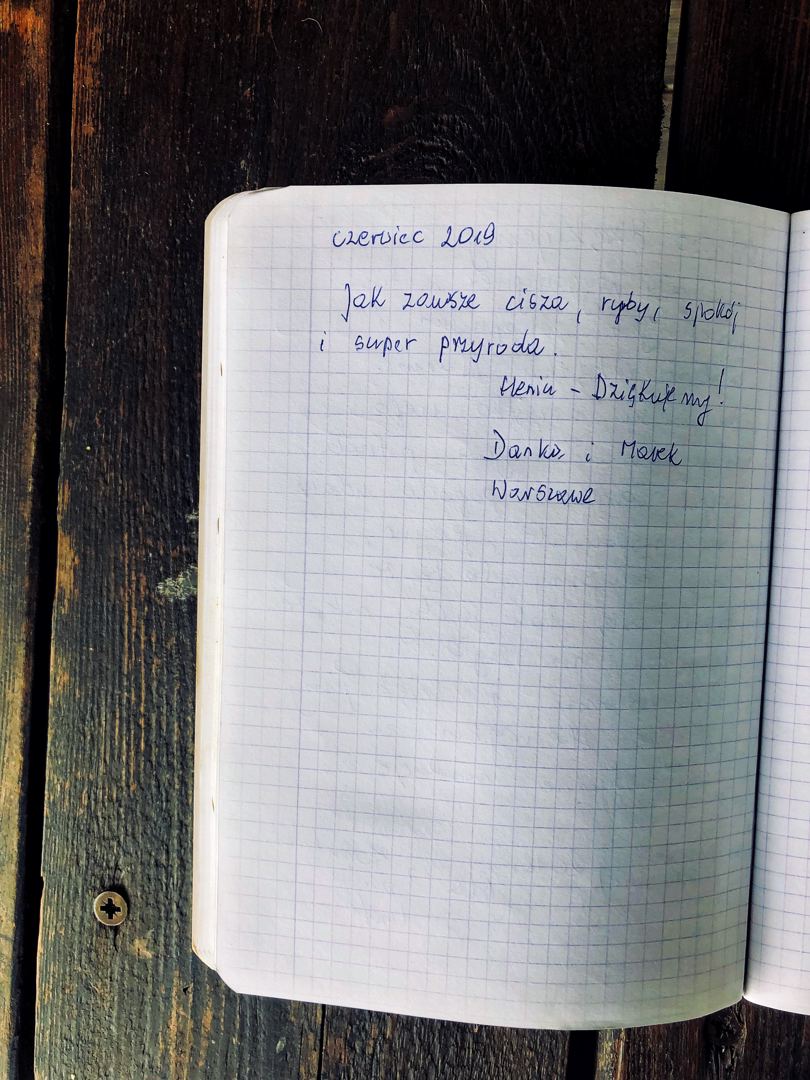 czerwiec 2019
Jak zawsze cisza, ryby, spokój
i super przyroda.
Heniu - Dziękujemy!
Danka i Marek
Warszawa